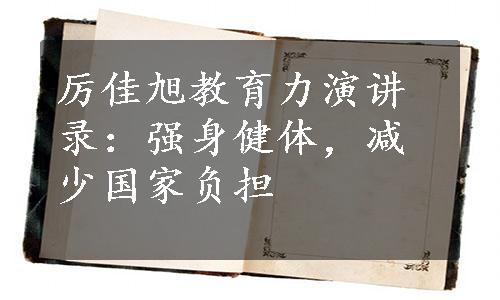 厉佳旭教育力演讲
录：强身健体，减
少国家负担